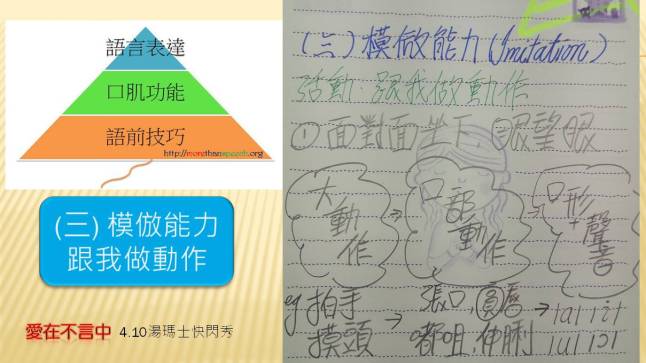 語言表達
口肌功能
語前技巧
http://morethanspeech.org
(三) 模倣能力
跟我做動作
愛在不言中 4.10湯瑪士快閃秀
(三) 模倣能力 (Imitation)
活動 跟我做動作
① 面對面坐下, 眼望眼
大動作 → 口部動作 → 口形+聲音
eg 拍手 張口, 圓唇
摸頭 → 嘟咀, 伸脷 →